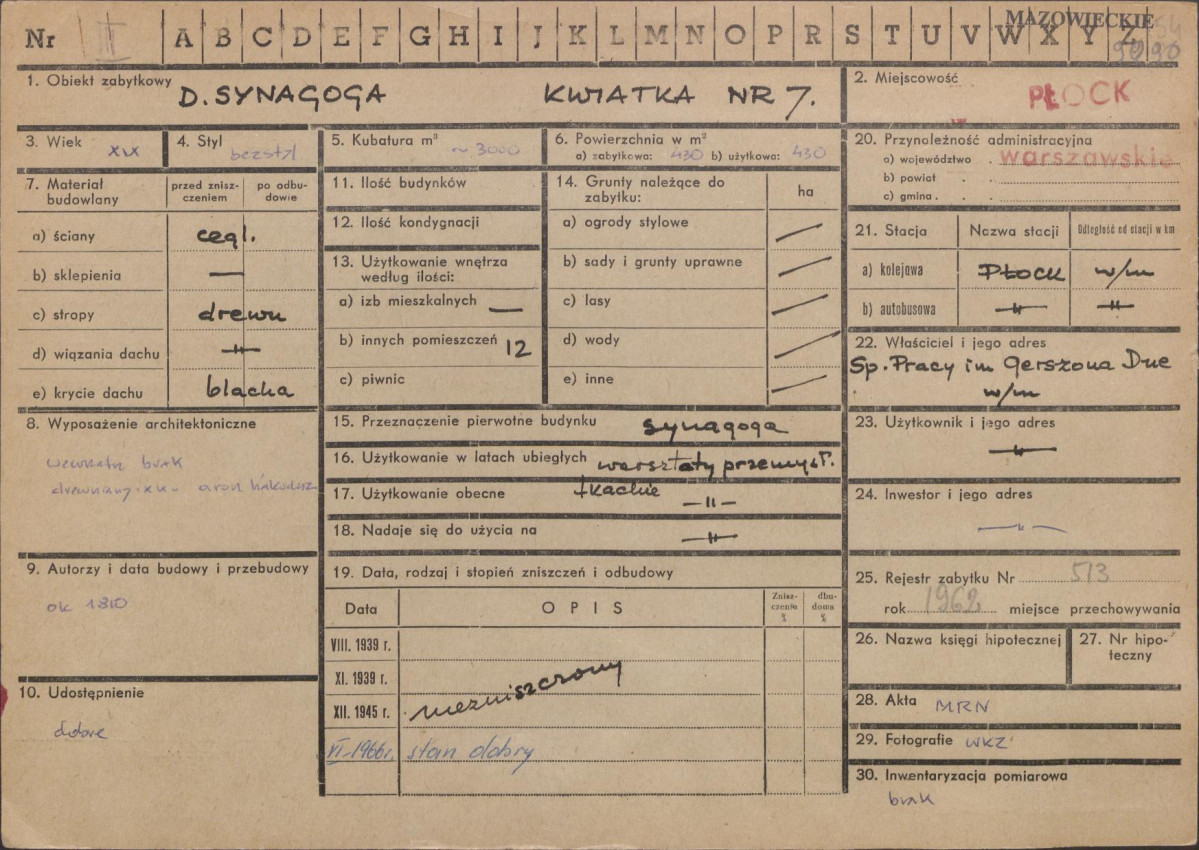 Nr III A B C D E F G H I J K L M N O P R S T U V W X Y Z
MAZOWIECKIE
1. Obiekt zabytkowy D. SYNAGOGA KWIATKA NR 7.
2. Miejscowość PŁOCK
3. Wiek XIX
4. Styl bezstyl
5. Kubatura m³ ~ 3000
6. Powierzchnia w m²
a) zabytkowa: 430 b) użytkowa: 430
7. Materiał budowlany
przed zniszczeniem
po odbudowie
a) ściany cegl.
b) sklepienia —
c) stropy drewn
d) wiązania dachu —"—
e) krycie dachu blacha
8. Wyposażenie architektoniczne
wewnątrz brak
drewniany
aron
9. Autorzy i data budowy i przebudowy
ok 1810
10. Udostępnienie
dobre
11. Ilość budynków
12. Ilość kondygnacji
13. Użytkowanie wnętrza
według ilości:
a) izb mieszkalnych —
b) innych pomieszczeń 12
c) piwnic
14. Grunty należące do
zabytku:
ha
a) ogrody stylowe —
b) sady i grunty uprawne —
c) lasy —
d) wody —
e) inne —
15. Przeznaczenie pierwotne budynku synagoga
16. Użytkowanie w latach ubiegłych warsztaty przemysł.
tkackie
17. Użytkowanie obecne —"—
18. Nadaje się do użycia na —"—
19. Data, rodzaj i stopień zniszczeń i odbudowy
Data
OPIS
Zniszczenie %
dbudowa %
VIII. 1939 r.
XI. 1939 r.
XII. 1945 r. niezniszczony
VI-1966r. stan dobry
20. Przynoleżność administracyjna
a) województwo warszawskie
b) powiat
c) gmina
21. Stacja
Nazwa stacji
Odległość od stacji w km
a) kolejowa PŁOCK w/m
b) autobusowa —"— —"—
22. Właściciel i jego adres
Sp. Pracy im Gerszona Due
w/m
23. Użytkownik i jego adres
—"—
24. Inwestor i jego adres
—"—
25. Rejestr zabytku Nr 513
rok 1962 miejsce przechowywania
26. Nazwa księgi hipotecznej
27. Nr hipoteczny
28. Akta MRN
29. Fotografie WKZ
30. Inwentaryzacja pomiarowa
brak